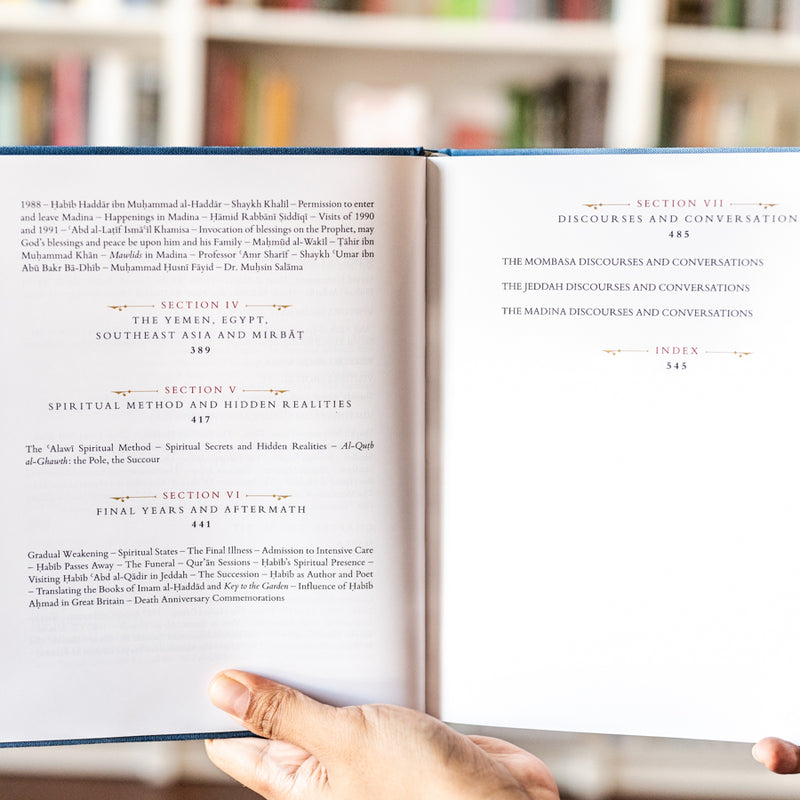 1988 – Ḥabīb Haddār ibn Muḥammad al-Haddār – Shaykh Khalīl – Permission to enter
and leave Madina – Happenings in Madina – Ḥāmid Rabbānī Ṣiddīqī – Visits of 1990
and 1991 – ʿAbd al-Laṭīf Ismāʿīl Khamisa – Invocation of blessings on the Prophet, may
God's blessings and peace be upon him and his Family – Maḥmūd al-Wakīl – Ṭāhir ibn
Muḥammad Khān – Mawlids in Madina – Professor ʿAmr Sharīf – Shaykh ʿUmar ibn
Abū Bakr Bā-Dhīb – Muḥammad Ḥusnī Fāyid – Dr. Muḥsin Salāma
SECTION IV
THE YEMEN, EGYPT,
SOUTHEAST ASIA AND MIRBĀṬ
389
SECTION V
SPIRITUAL METHOD AND HIDDEN REALITIES
417
The ʿAlawī Spiritual Method – Spiritual Secrets and Hidden Realities – Al-Quṭb
al-Ghawth: the Pole, the Succour
SECTION VI
FINAL YEARS AND AFTERMATH
441
Gradual Weakening – Spiritual States – The Final Illness – Admission to Intensive Care
– Ḥabīb Passes Away – The Funeral – Qurʾān Sessions – Ḥabīb's Spiritual Presence –
Visiting Ḥabīb ʿAbd al-Qādir in Jeddah – The Succession – Ḥabīb as Author and Poet
– Translating the Books of Imam al-Ḥaddād and Key to the Garden – Influence of Ḥabīb
Aḥmad in Great Britain – Death Anniversary Commemorations
SECTION VII
DISCOURSES AND CONVERSATION
485
THE MOMBASA DISCOURSES AND CONVERSATIONS
THE JEDDAH DISCOURSES AND CONVERSATIONS
THE MADINA DISCOURSES AND CONVERSATIONS
INDEX
545